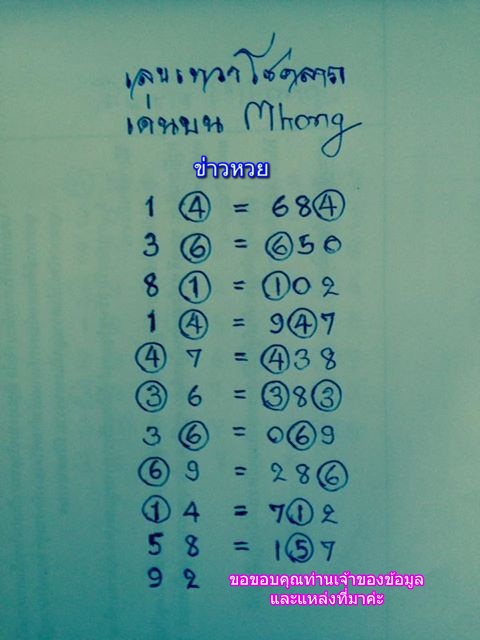 เลขเทวาโชคลาภ
เด่นบน Mhong
ข่าวหวย
1 4 = 684
3 6 = 650
8 1 = 102
1 4 = 947
4 7 = 438
3 6 = 383
3 6 = 069
6 9 = 286
1 4 = 712
5 8 = 157
9 2
ขอขอบคุณท่านเจ้าของข้อมูล
และแหล่งที่มาค่ะ